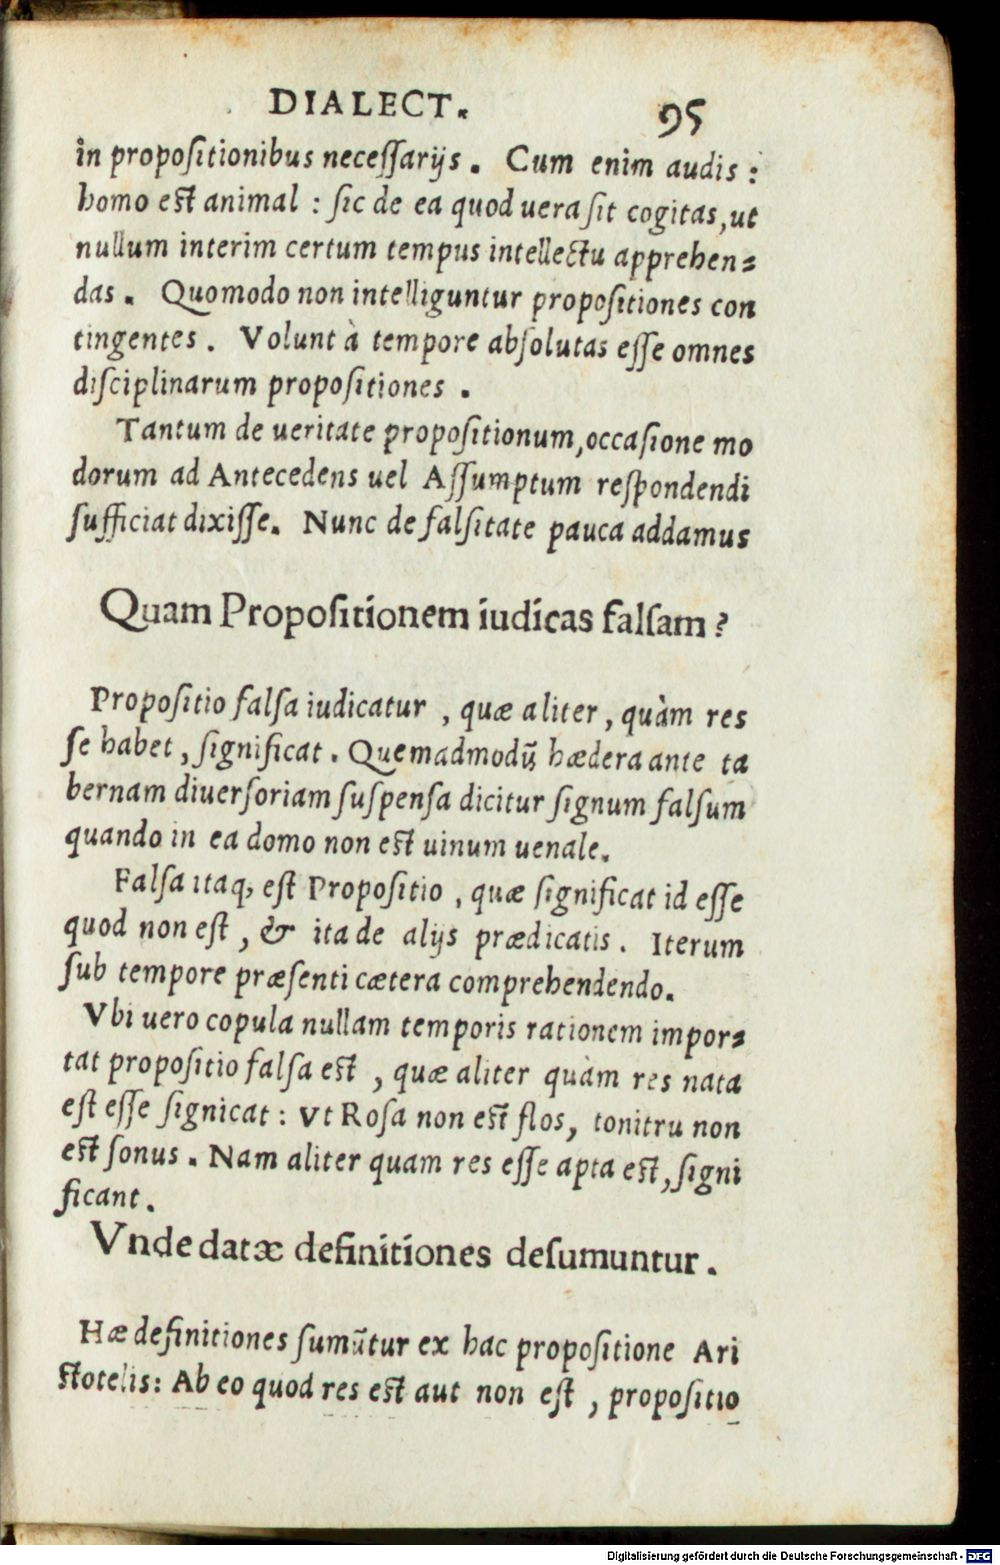 DIALECT. 95
in propositionibus necessarijs. Cum enim audis:
homo est animal: sic de ea quod uera sit cogitas, ut
nullum interim certum tempus intellectu apprehen=
das. Quomodo non intelliguntur propositiones con
tingentes. Volunt à tempore absolutas esse omnes
disciplinarum propositiones.
Tantum de ueritate propositionum, occasione mo
dorum ad Antecedens uel Assumptum respondendi
sufficiat dixisse. Nunc de falsitate pauca addamus
Quam Propositionem iudicas falsam?
Propositio falsa iudicatur, quæ aliter, quàm res
se habet, significat. Quemadmodũ hædera ante ta
bernam diuersoriam suspensa dicitur signum falsum
quando in ea domo non est uinum uenale.
Falsa itaq; est Propositio, quæ significat id esse
quod non est, & ita de alijs prædicatis. Iterum
sub tempore præsenti cætera comprehendendo.
Vbi uero copula nullam temporis rationem impor=
tat propositio falsa est, quæ aliter quàm res nata
est esse signicat: vt Rosa non est flos, tonitru non
est sonus. Nam aliter quam res esse apta est, signi
ficant.
Vnde datæ definitiones desumuntur.
Hæ definitiones sumũtur ex hac propositione Ari
stotelis: Ab eo quod res est aut non est, propositio
Digitalisierung gefördert durch die Deutsche Forschungsgemeinschaft - DFG